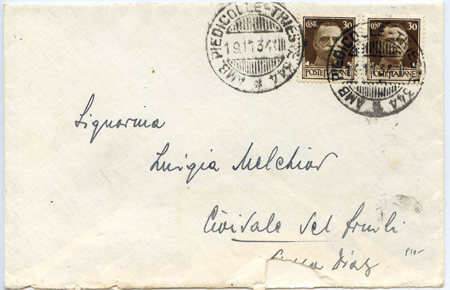 AMB. PIEDICOLLE-TRIESTE 344
19.11.34
30 30
POSTE ITALIANE POSTE ITALIANE
Signorina
Luigia Melchior
Cividale del friuli
Diaz